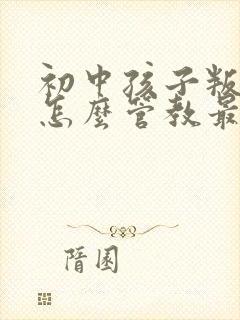 初中孩子叛
怎麼管教最
隋園